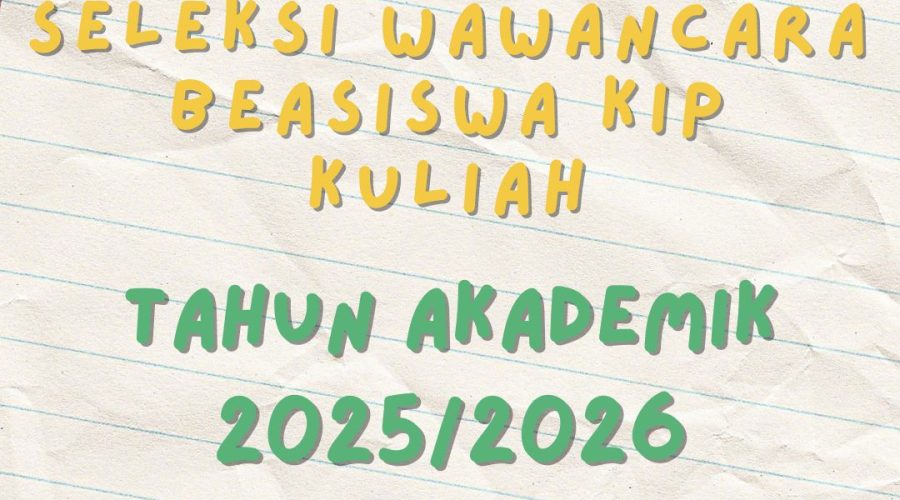 SELEKSI WAWANCARA
BEASISWA KIP
KULIAH
TAHUN AKADEMIK
2025/2026